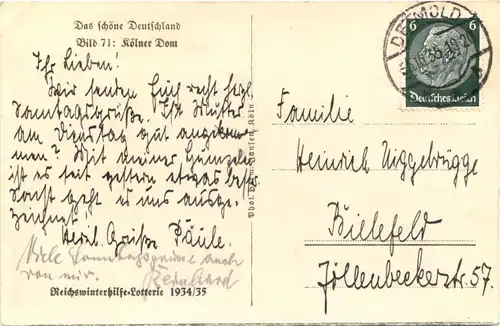 Das schöne Deutschland
Bild 71: Kölner Dom
Ihr Lieben!
Wir senden Euch recht herzl.
Sonntagsgrüße. Ist Mutter
am Dienstag gut angekom-
men? Mit meiner
ist es seit gestern etwas besser.
Sonst geht es uns ausge-
zeichnet.
Herzl. Grüße Päule.
Viele Sonntagsgrüße auch
von mir. Bernhard
Reichswinterhilfe-Lotterie 1934/35
Köln
DETMOLD
6 6
Deutsches Reich
Familie
Heinrich Niggebrügge
Bielefeld
Jöllenbeckerstr. 57.